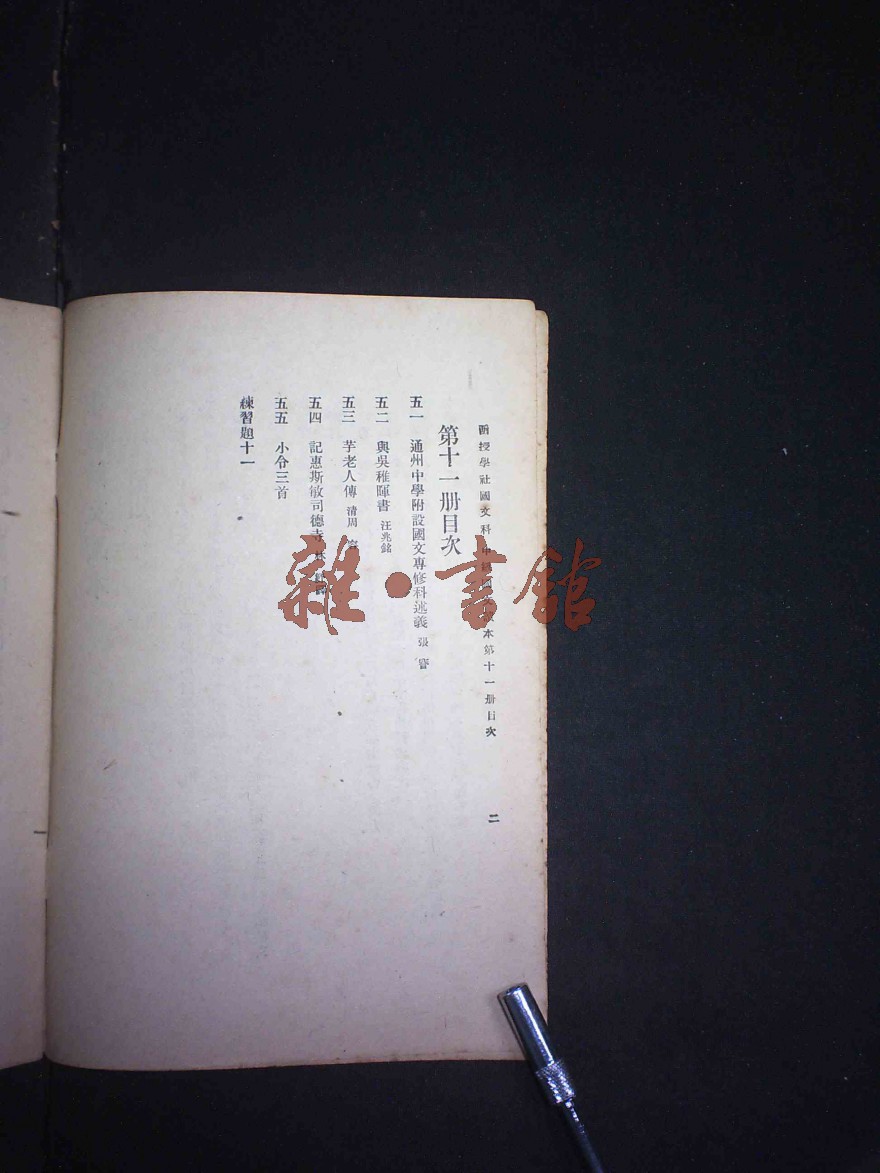 函授學社國文科中級國文 本第十一册目次
二
第十一册目次
五一 通州中學附設國文專修科述義 張謇
五二 與吳稚暉書 汪兆銘
五三 芋老人傳 清周 容
五四 記惠斯敏司德寺 林
五五 小令三首
練習題十一
雜·書館